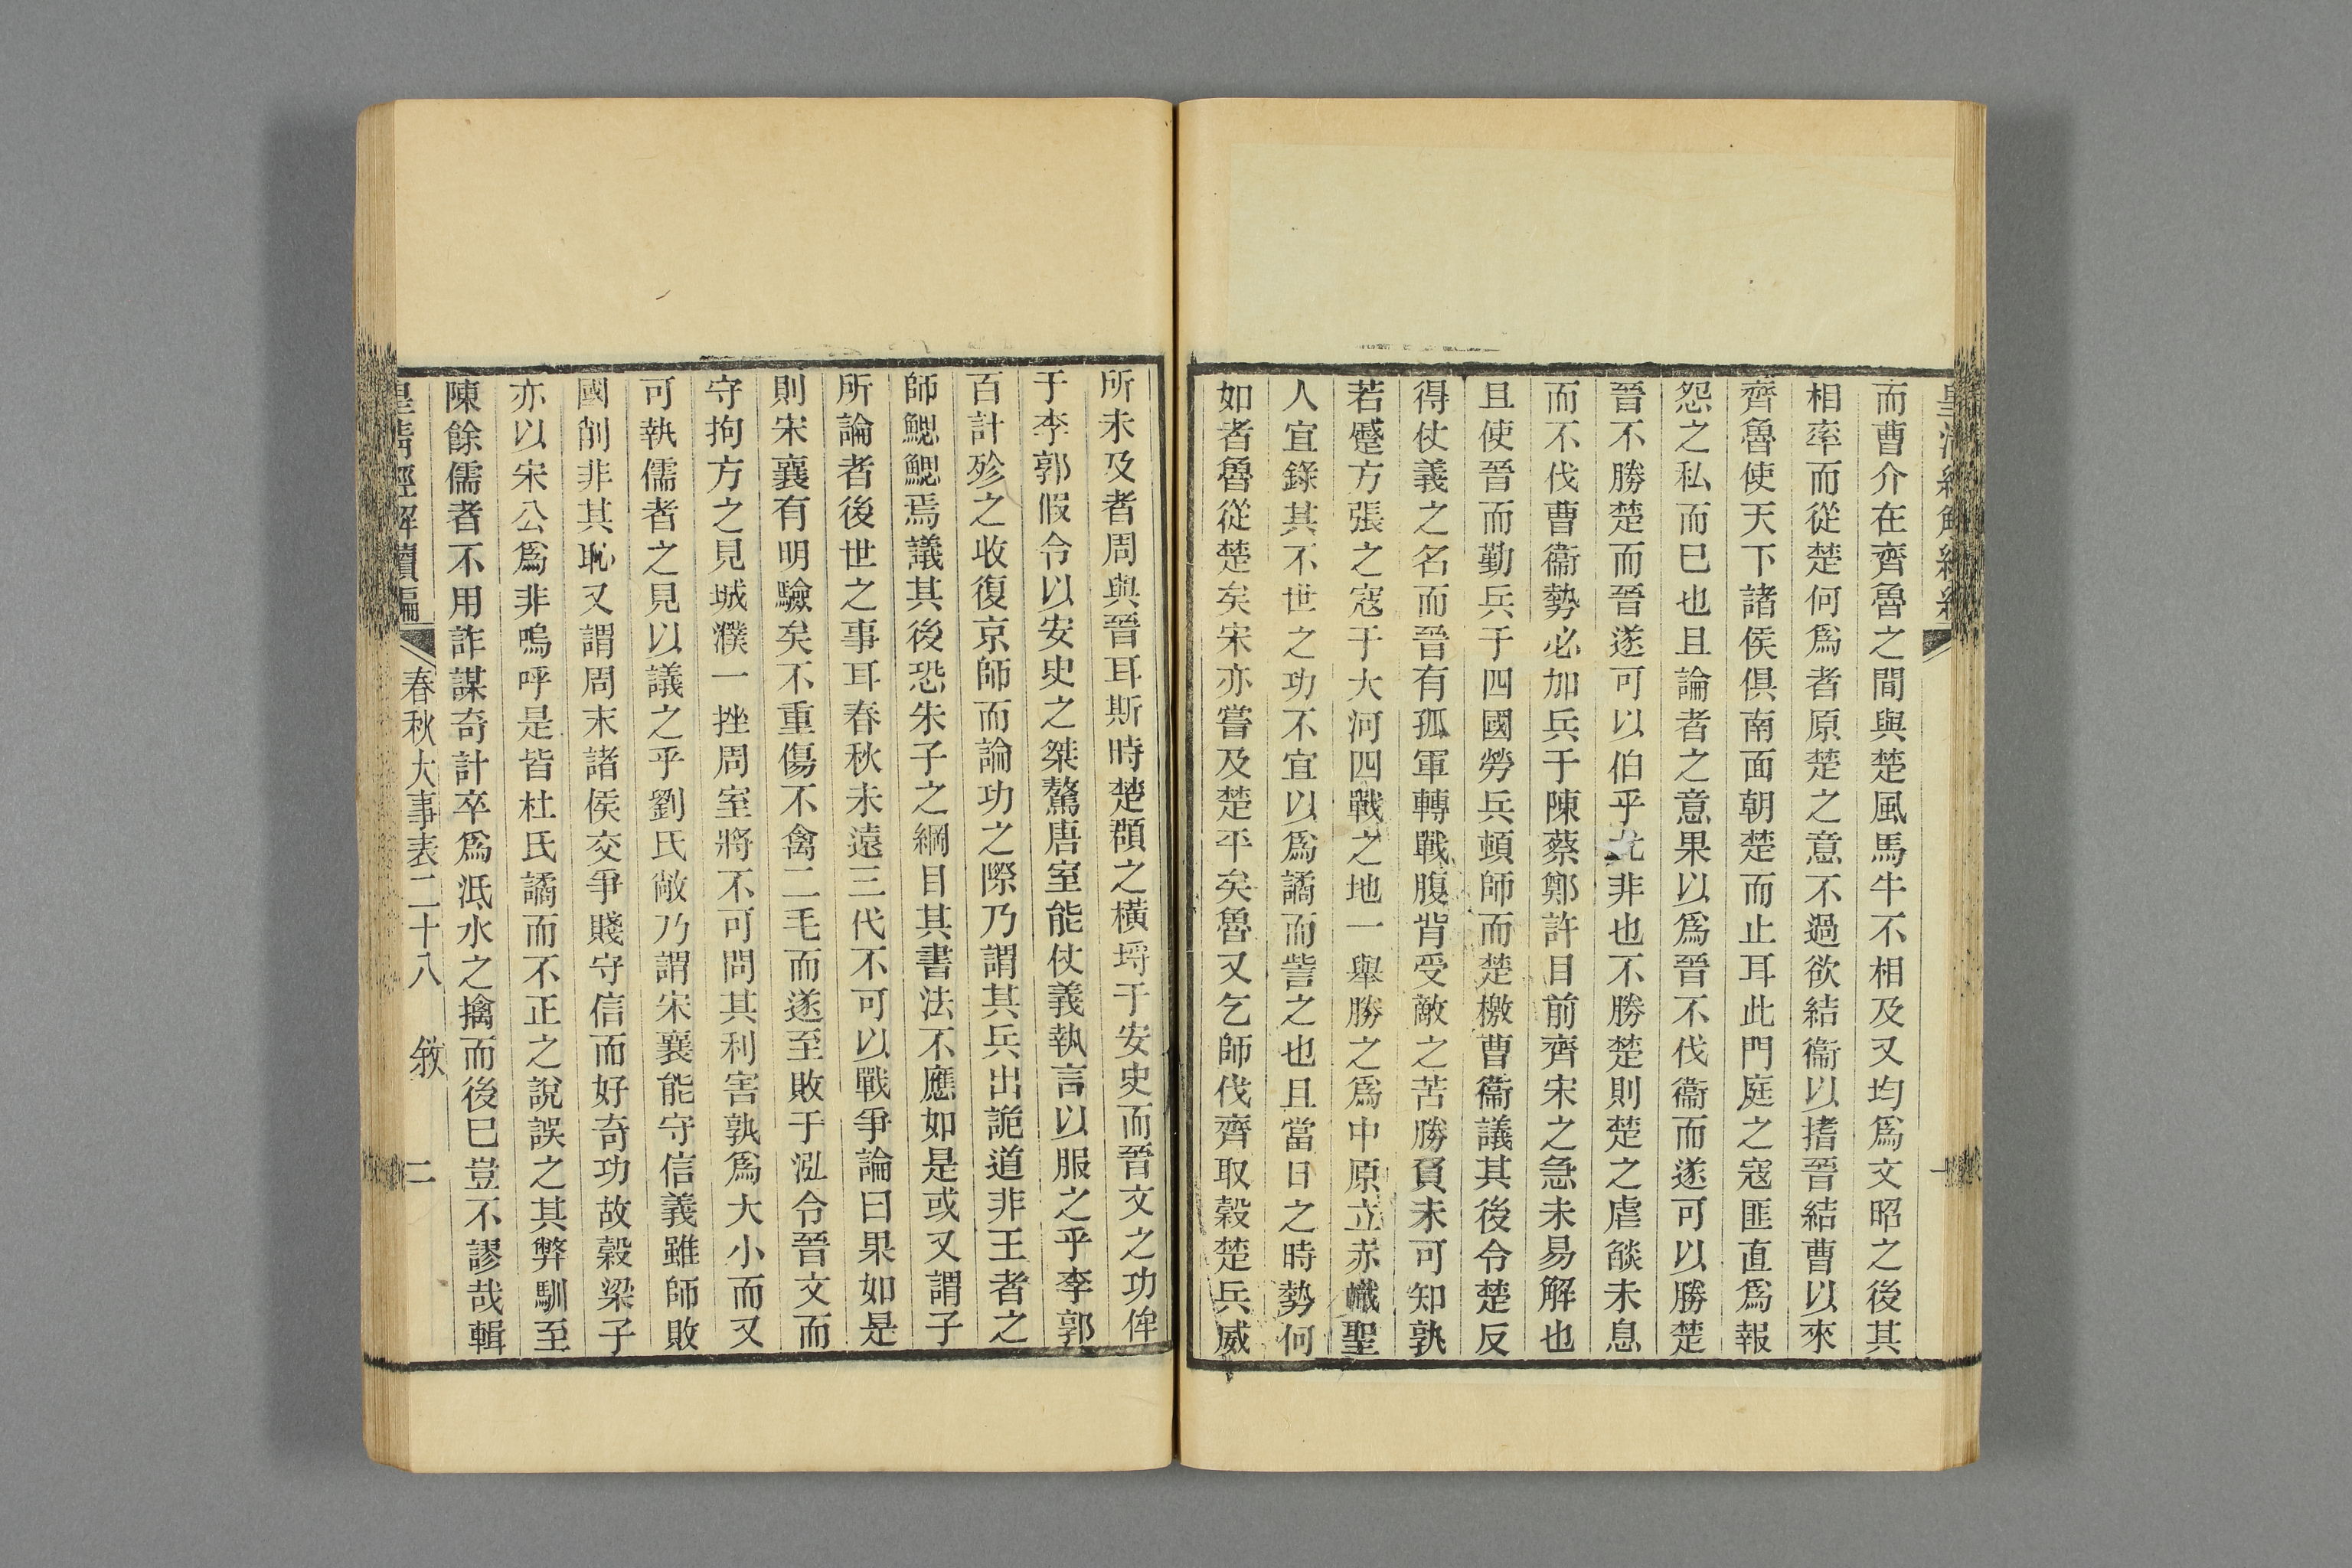 而曹介在齊魯之間與楚風馬牛不相及又均爲文昭之後其
相率而從楚何爲者原楚之意不過欲結衞以撓晉結曹以來
齊魯使天下諸侯俱南面朝楚而止耳此門庭之寇匪直爲報
怨之私而已也且論者之意果以爲晉不伐衞而遂可以勝楚
晉不勝楚而晉遂可以伯乎尤非也不勝楚則楚之虐燄未息
而不伐曹衞勢必加兵于陳蔡鄭許目前齊宋之急未易解也
且使晉而勤兵于四國勞兵頓師而楚檄曹衞議其後令楚反
得仗義之名而晉有孤軍轉戰腹背受敵之苦勝負未可知孰
若蹙方張之寇于大河四戰之地一舉勝之爲中原立赤幟聖
人宜錄其不世之功不宜以爲譎而訾之也且當日之時勢何
如者魯從楚矣宋亦嘗及楚平矣魯又乞師伐齊取穀楚兵威
所未及者周與晉耳斯時楚頵之橫埓于安史而晉文之功侔
于李郭假令以安史之桀驁唐室能仗義執言以服之乎李郭
百計殄之收復京師而論功之際乃謂其兵出詭道非王者之
師鰓鰓焉議其後恐朱子之綱目其書法不應如是或又謂子
所論者後世之事耳春秋未遠三代不可以戰爭論曰果如是
則宋襄有明驗矣不重傷不禽二毛而遂至敗于泓令晉文而
守拘方之見城濮一挫周室將不可問其利害孰爲大小而又
可執儒者之見以議之乎劉氏敞乃謂宋襄能守信義雖師敗
國削非其恥又謂周末諸侯交爭賤守信而好奇功故穀梁子
亦以宋公爲非嗚呼是皆杜氏譎而不正之說誤之其弊馴至
陳餘儒者不用詐謀奇計卒爲泜水之擒而後已豈不謬哉輯
皇清經解續編 春秋大事表二十八 敘 二